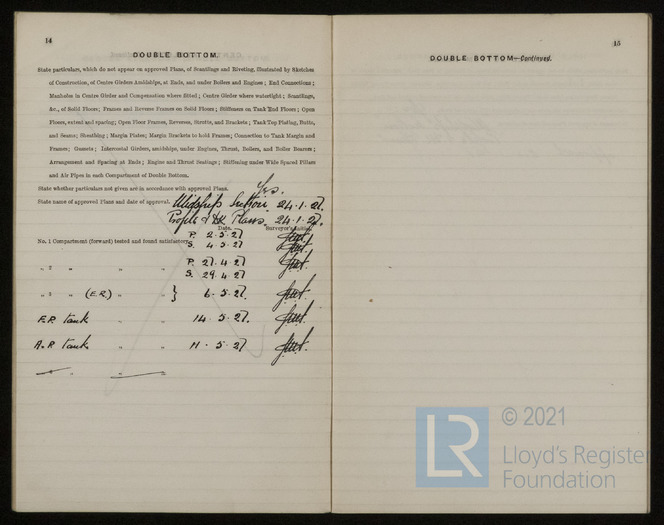 14
DOUBLE BOTTOM.
State particulars, which do not appear on approved Plans, of Scantlings and Riveting, illustrated by Sketches
of Construction, of Centre Girders Amidships, at Ends, and under Boilers and Engines; End Connections;
Manholes in Centre Girder and Compensation where fitted; Centre Girder where watertight; Scantlings,
&c., of Solid Floors; Frames and Reverse Frames on Solid Floors; Stiffeners on Tank End Floors; Open
Floors, extent and spacing; Open Floor Frames, Reverses, Struts, and Brackets; Tank Top Plating, Butts,
and Seams; Sheathing; Margin Plates; Margin Brackets to hold Frames; Connection to Tank Margin and
Frames; Gussets; Intercostal Girders, amidships, under Engines, Thrust, Boilers, and Boiler Bearers;
Arrangement and Spacing at Ends; Engine and Thrust Seatings; Stiffening under Wide Spaced Pillars
and Air Pipes in each Compartment of Double Bottom.
State whether particulars not given are in accordance with approved Plans. Yes.
State name of approved Plans and date of approval. Midship Section 24.1.27.
Profile & Dk Plans 24.1.27.
Date. Surveyor's Initials
No. 1 Compartment (forward) tested and found satisfactory P. 2.5.27
S. 4.5.27
„ 2 „ „ „ P. 27.4.27
S. 29.4.27
„ 3 „ (E.R.) „ „ } 6.5.27.
F.P. tank „ „ 14.5.27.
A.P. tank „ „ 11.5.27
15
DOUBLE BOTTOM—Continued.
LR
© 2021
Lloyd's Register
Foundation